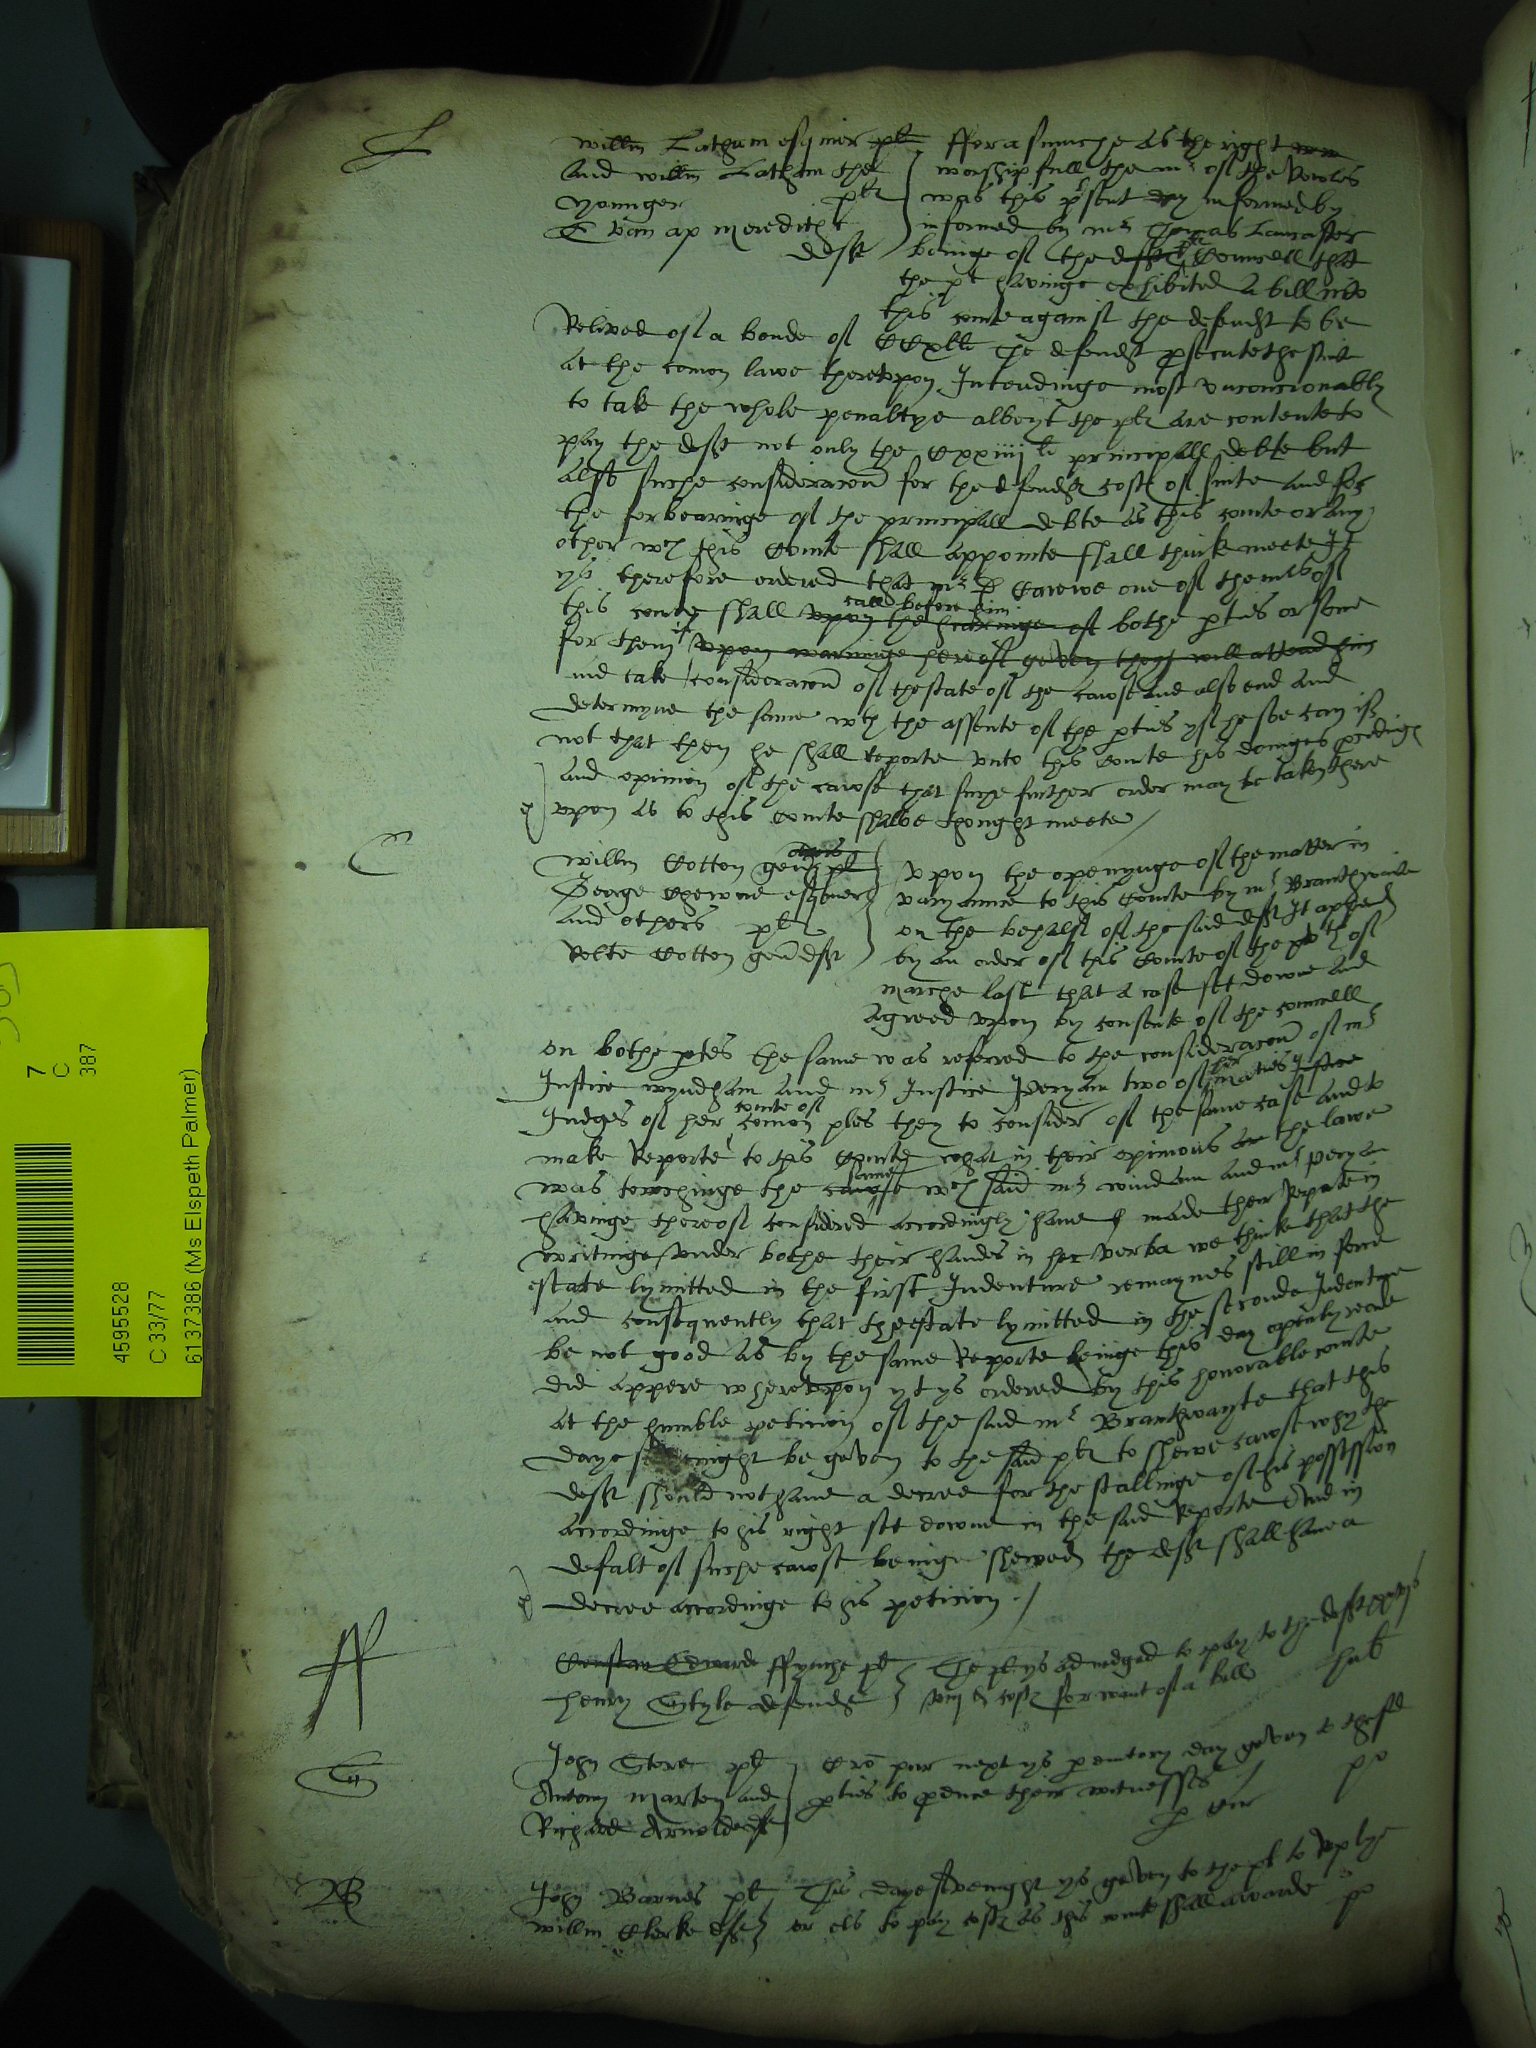 L
Willm Latham esquier plt
And willm Latham the
younger plts
Evan ap meredith
deft
fforasmuche as the right
worshipfull the mr of the Rowles
was this psent day informed by
informed by mr Thomas Lancaster
beinge of the deft plts Counsell that
the plt havinge exhibited a bill into
this courte against the defendt to be
Relived of a bonde of CCxlli The defendt psecute the suite
at the comon lawe thereuppon Intendinge most unconcionably
to take the whole penaltye albeyt the plts are contente to
pay the deft not only the Cxxiiijli principall debte but
also suche consideracon for the defendts costs of suite and for
the forbearinge of the principall debte as this courte or any
other wch this Courte shall appointe shall think meete It
ys therefore ordered that mr D Carewe one of the mrs of
this courte shall upon the hearinge call before him of bothe pties or some
for them upon warninge hereof geven they will attend him
and take consideracon of the state of the cawse and also end and
determyne the same wth the assente of the pties yf he soe can if
not that then he shall reporte unto this Courte his doinges pcedings
and opinion of the cawse that suche further order may be taken there
upon as to this Courte shalbe thought meete
C
Willm Cotton gen plt
George Chewne esquier
and others plts
Robte Cotton gen deft
Upon the openynge of the matter in
varyaunce to this Courte by mr Branthwaite
on the behalf of the said deft It appered
by an order of this Courte of the th of
marche last that a case sett downe and
agreed upon by consente of the councell
on bothe ptes the same was referred to the consideracon of mr
Justice wyndham and mr Justice Peryam two of her maties Justice
Judges of her courte of comon ples they to consider of the same case and to
make Reporte to this Courte what in their opinions the lawe
was towchinge the cawse same wch said mr windam and mr Peryam
havinge thereof considered accordingly have made their Reporte in
writinge under bothe their handes in hec verba we thinke that the
estate lymitted in the first Indenture remaynes still in force
and consequently that the estate lymitted in the seconde Indenture
be not good as by the same Reporte beinge this day openly reade
did appere whereuppon yt ys ordered by this honorable courte
at the humble peticion of the said mr Branthwayte that this
daye sevenight be geven to the said plts to shewe cawse why the
deft should not have a decree for the stallinge of his possession
accordinge to his right sett downe in the said Reporte And in
defalt of suche cawse beinge shewed the deft shall have a
decree accordinge to his peticion
ff
Edward ffynche plt
henry Style defendt
The plt ys adiudged to pay to the deft
costs for want of a bill
hub
G
John Gore plt
Antony Marten and
Richard Arnolde deft
Cro pur next ys pemtory day geven to the sd
pties to pduce their witnesses
p Cur
po
B
John Barnes plt
willm Clerke deft
This daye sevenight ys geven to the plt to Replye
or els to pay costs as this courte shall awarde
po
7
C
387
4595528
C 33/77
6137386 (Ms Elspeth Palmer)